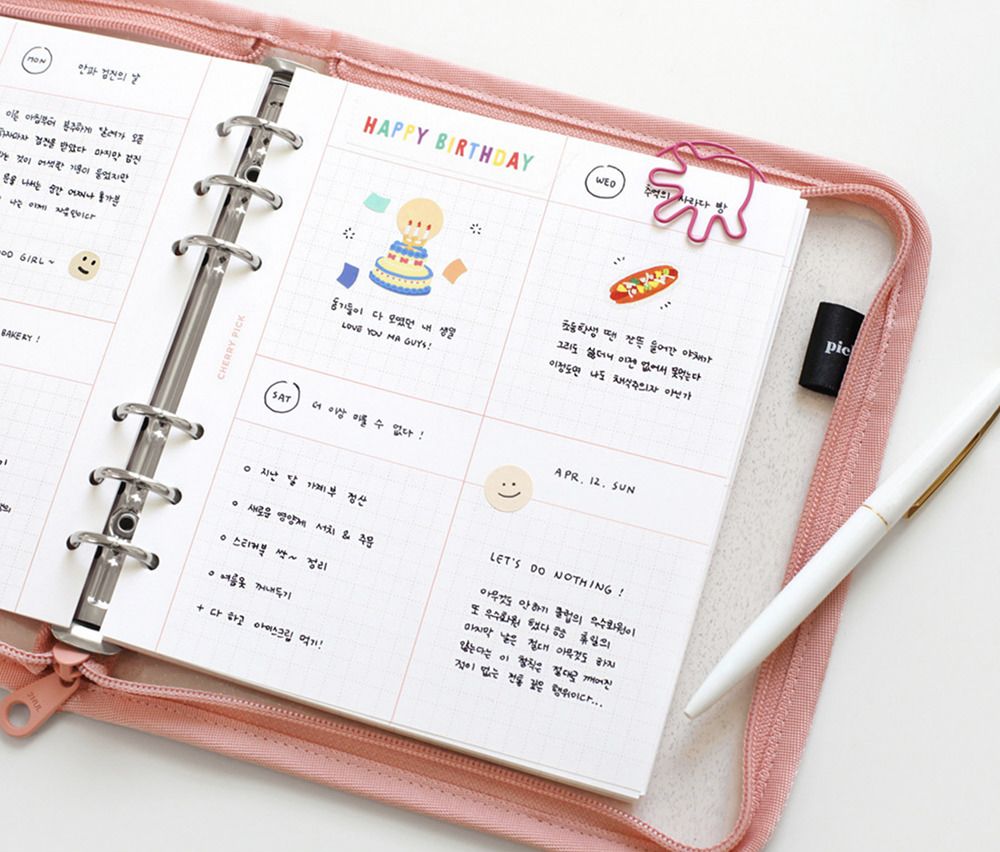 MON
치과 검진의 날
이른 아침부터 분주하게 달려가 오픈
하자마자 검진을 받았다 마지막 검진
는 것이 어색한 기분이 들었지만
문을 나서는 순간 어찌나 홀가분
나는 이제 자유인이다
OOD GIRL~
BAKERY!
CHERRY PICK
HAPPY BIRTHDAY
동기들이 다 모였던 내 생일
LOVE YOU MA GUYS!
WED
추억의 사라다 빵
초등학생 땐 잔뜩 들어간 야채가
그리도 싫더니 이젠 없어서 못먹는다
이정도면 나도 채식주의자 아닌가
SAT
더 이상 미룰 수 없다!
o 지난 달 가계부 정산
o 새로운 영양제 서치 & 주문
o 스티커북 싹~ 정리
o 여름옷 꺼내두기
+ 다 하고 아이스크림 먹기!
APR. 12. SUN
LET'S DO NOTHING!
아무것도 안하기 클럽의 우수회원이
또 우수회원 했다 휴일의
마지막 날은 절대 아무것도 하지
않는다는 이 철칙은 절대로 깨어진
적이 없는 전통 깊은 행위이다...
pic